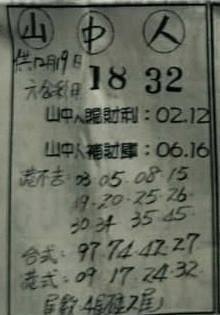 山中人
供12月19日
六合彩用
18 32
山中人賜財利：02.12
山中人補財庫：06.16
港不吉：03.05.08.15
19.20.25.26
30.34 35.45
台式：97.74.42.27
港式：09.17.24.32
尾數：4尾